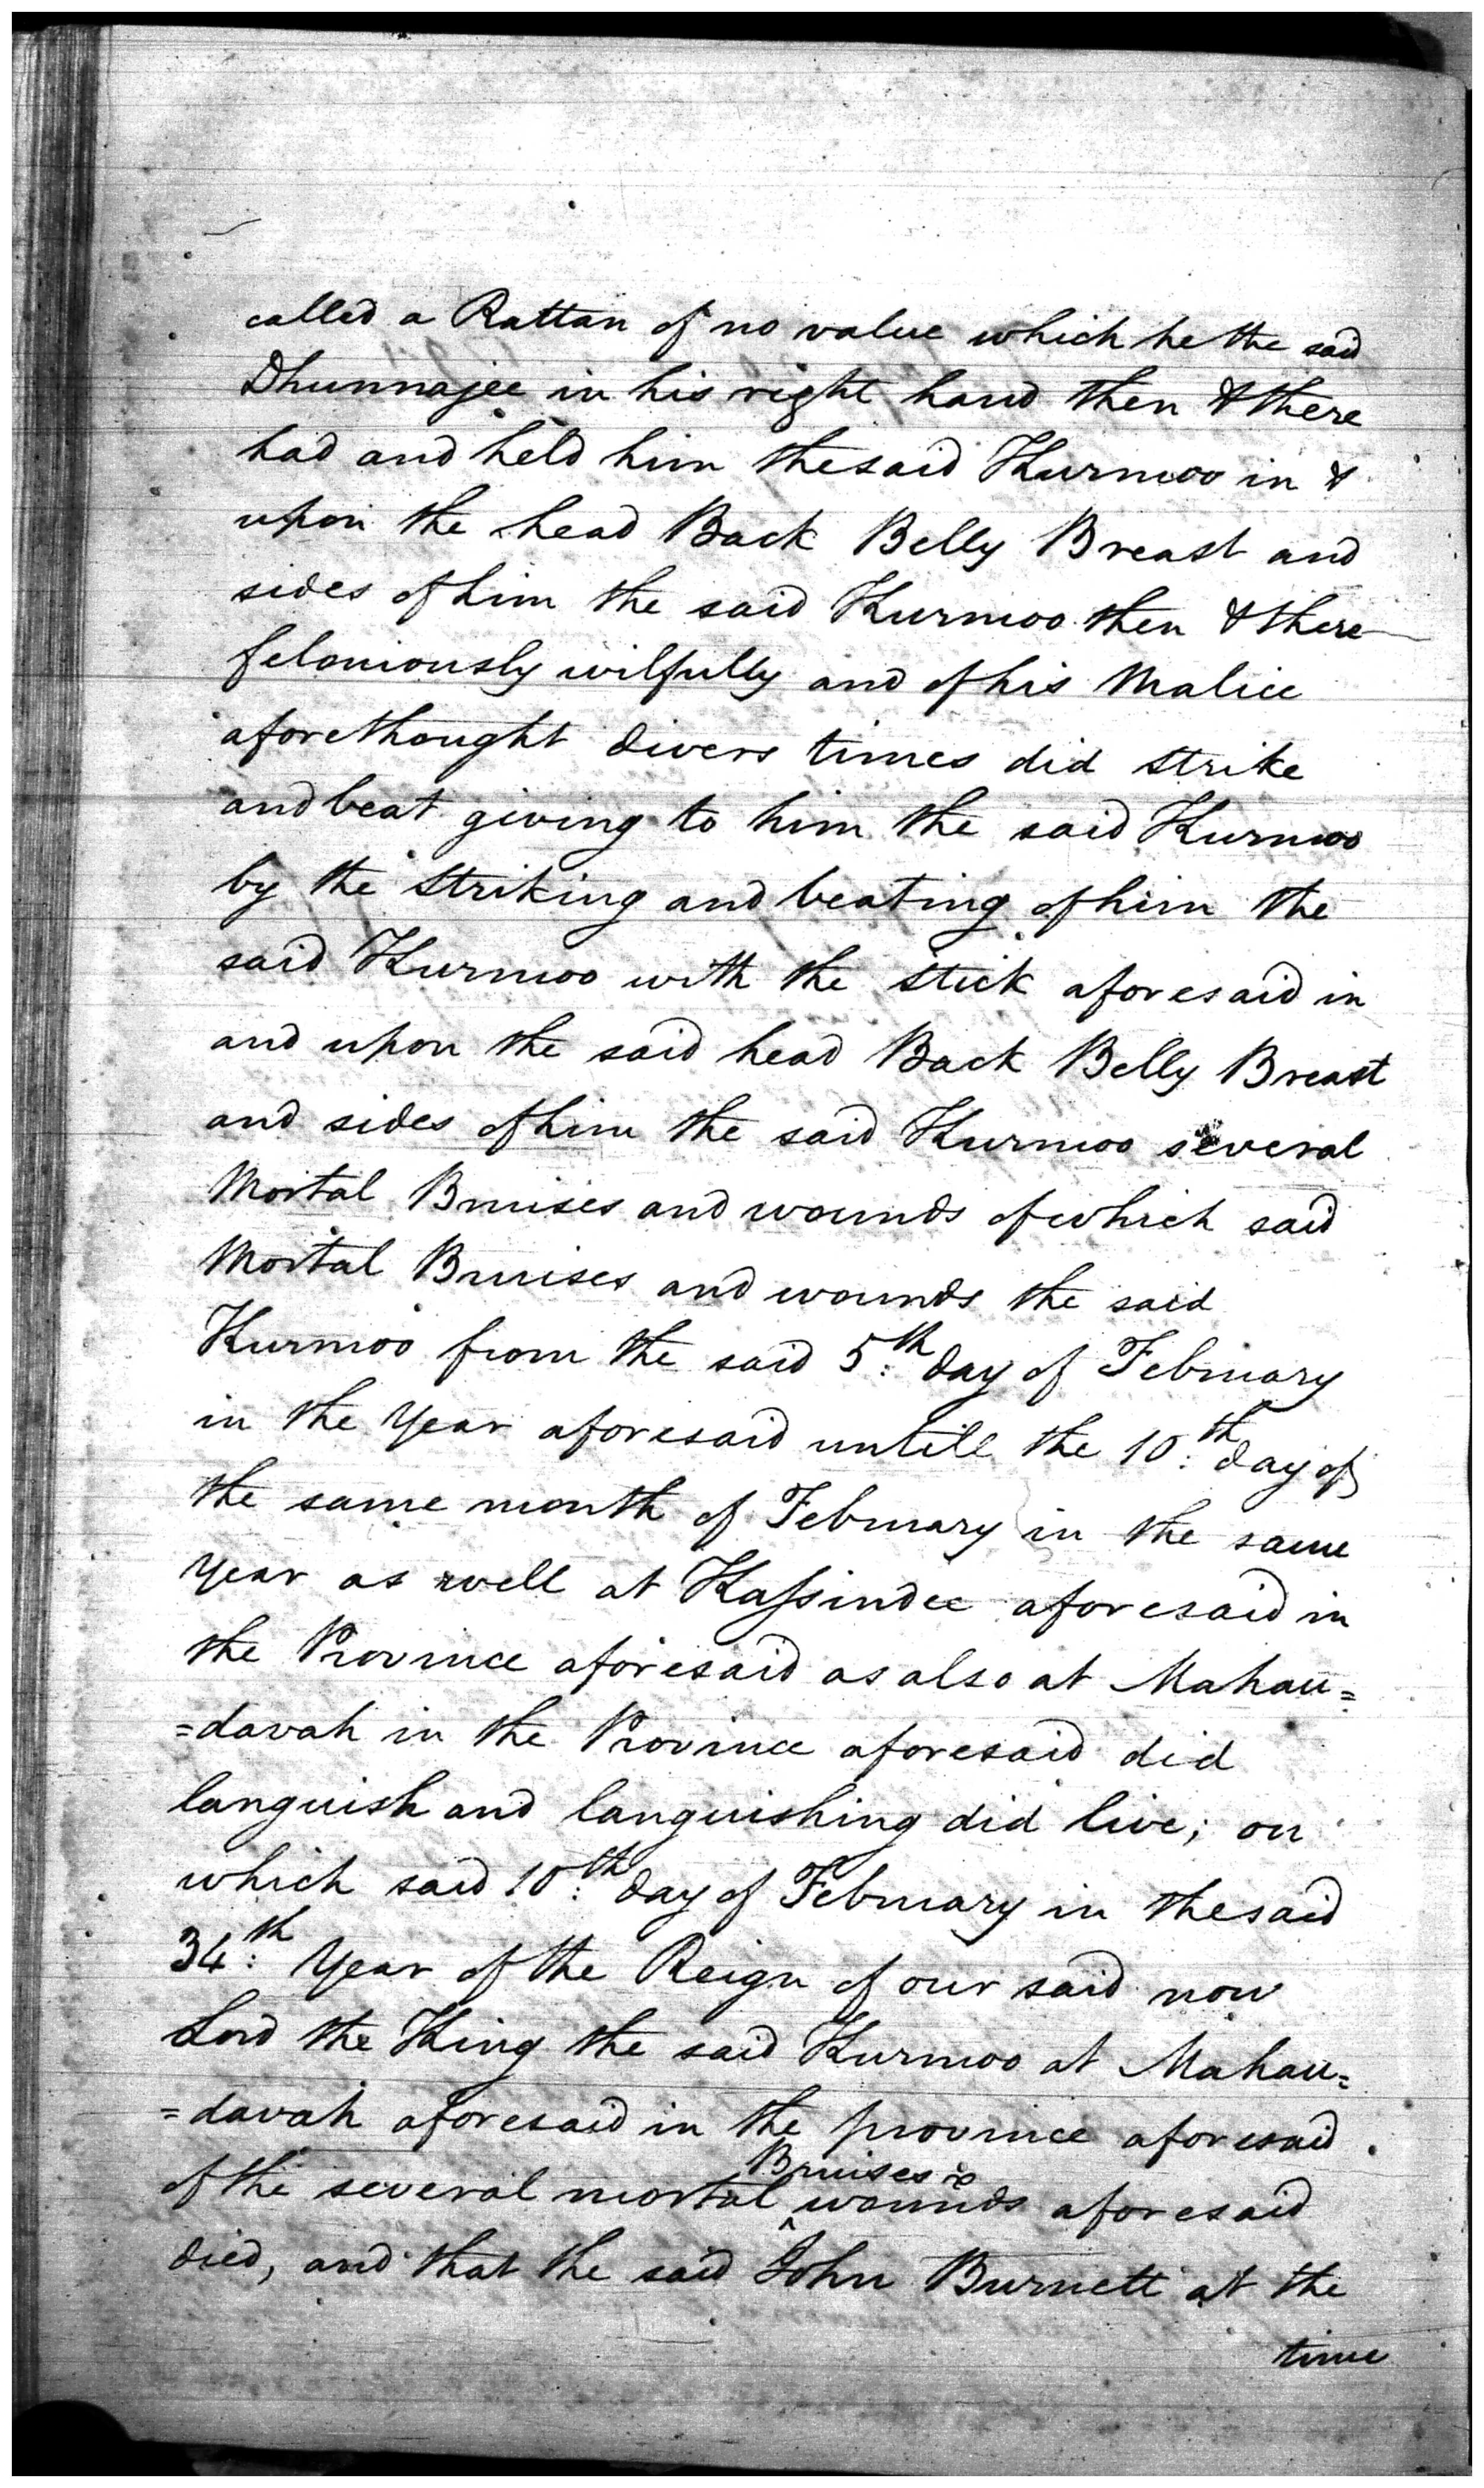 called a Rattan of no value which he the said
Dhunnajee in his right hand then & there
had and held him the said Kurmoo in &
upon the head Back Belly Breast and
sides of him the said Kurmoo then & there
feloniously wilfully and of his Malice
aforethought divers times did strike
and beat giving to him the said Kurmoo
by the striking and beating of him the
said Kurmoo with the stick aforesaid in
and upon the said head Back Belly Breast
and sides of him the said Kurmoo several
Mortal Bruises and wounds of which said
Mortal Bruises and wounds the said
Kurmoo from the said 5:th day of February
in the Year aforesaid untill the 10:th day of
the same month of February in the same
Year as well at Kaſsindee aforesaid in
the Province aforesaid as also at Mahau=
=davah in the Province aforesaid did
languish and languishing did live; on
which said 10:th day of February in the said
34:th Year of the Reign of our said now
Lord the King the said Kurmoo at Mahau=
=davah aforesaid in the province aforesaid
of the several mortal ^Bruises & wounds aforesaid
died, and that the said John Burnett at the
time